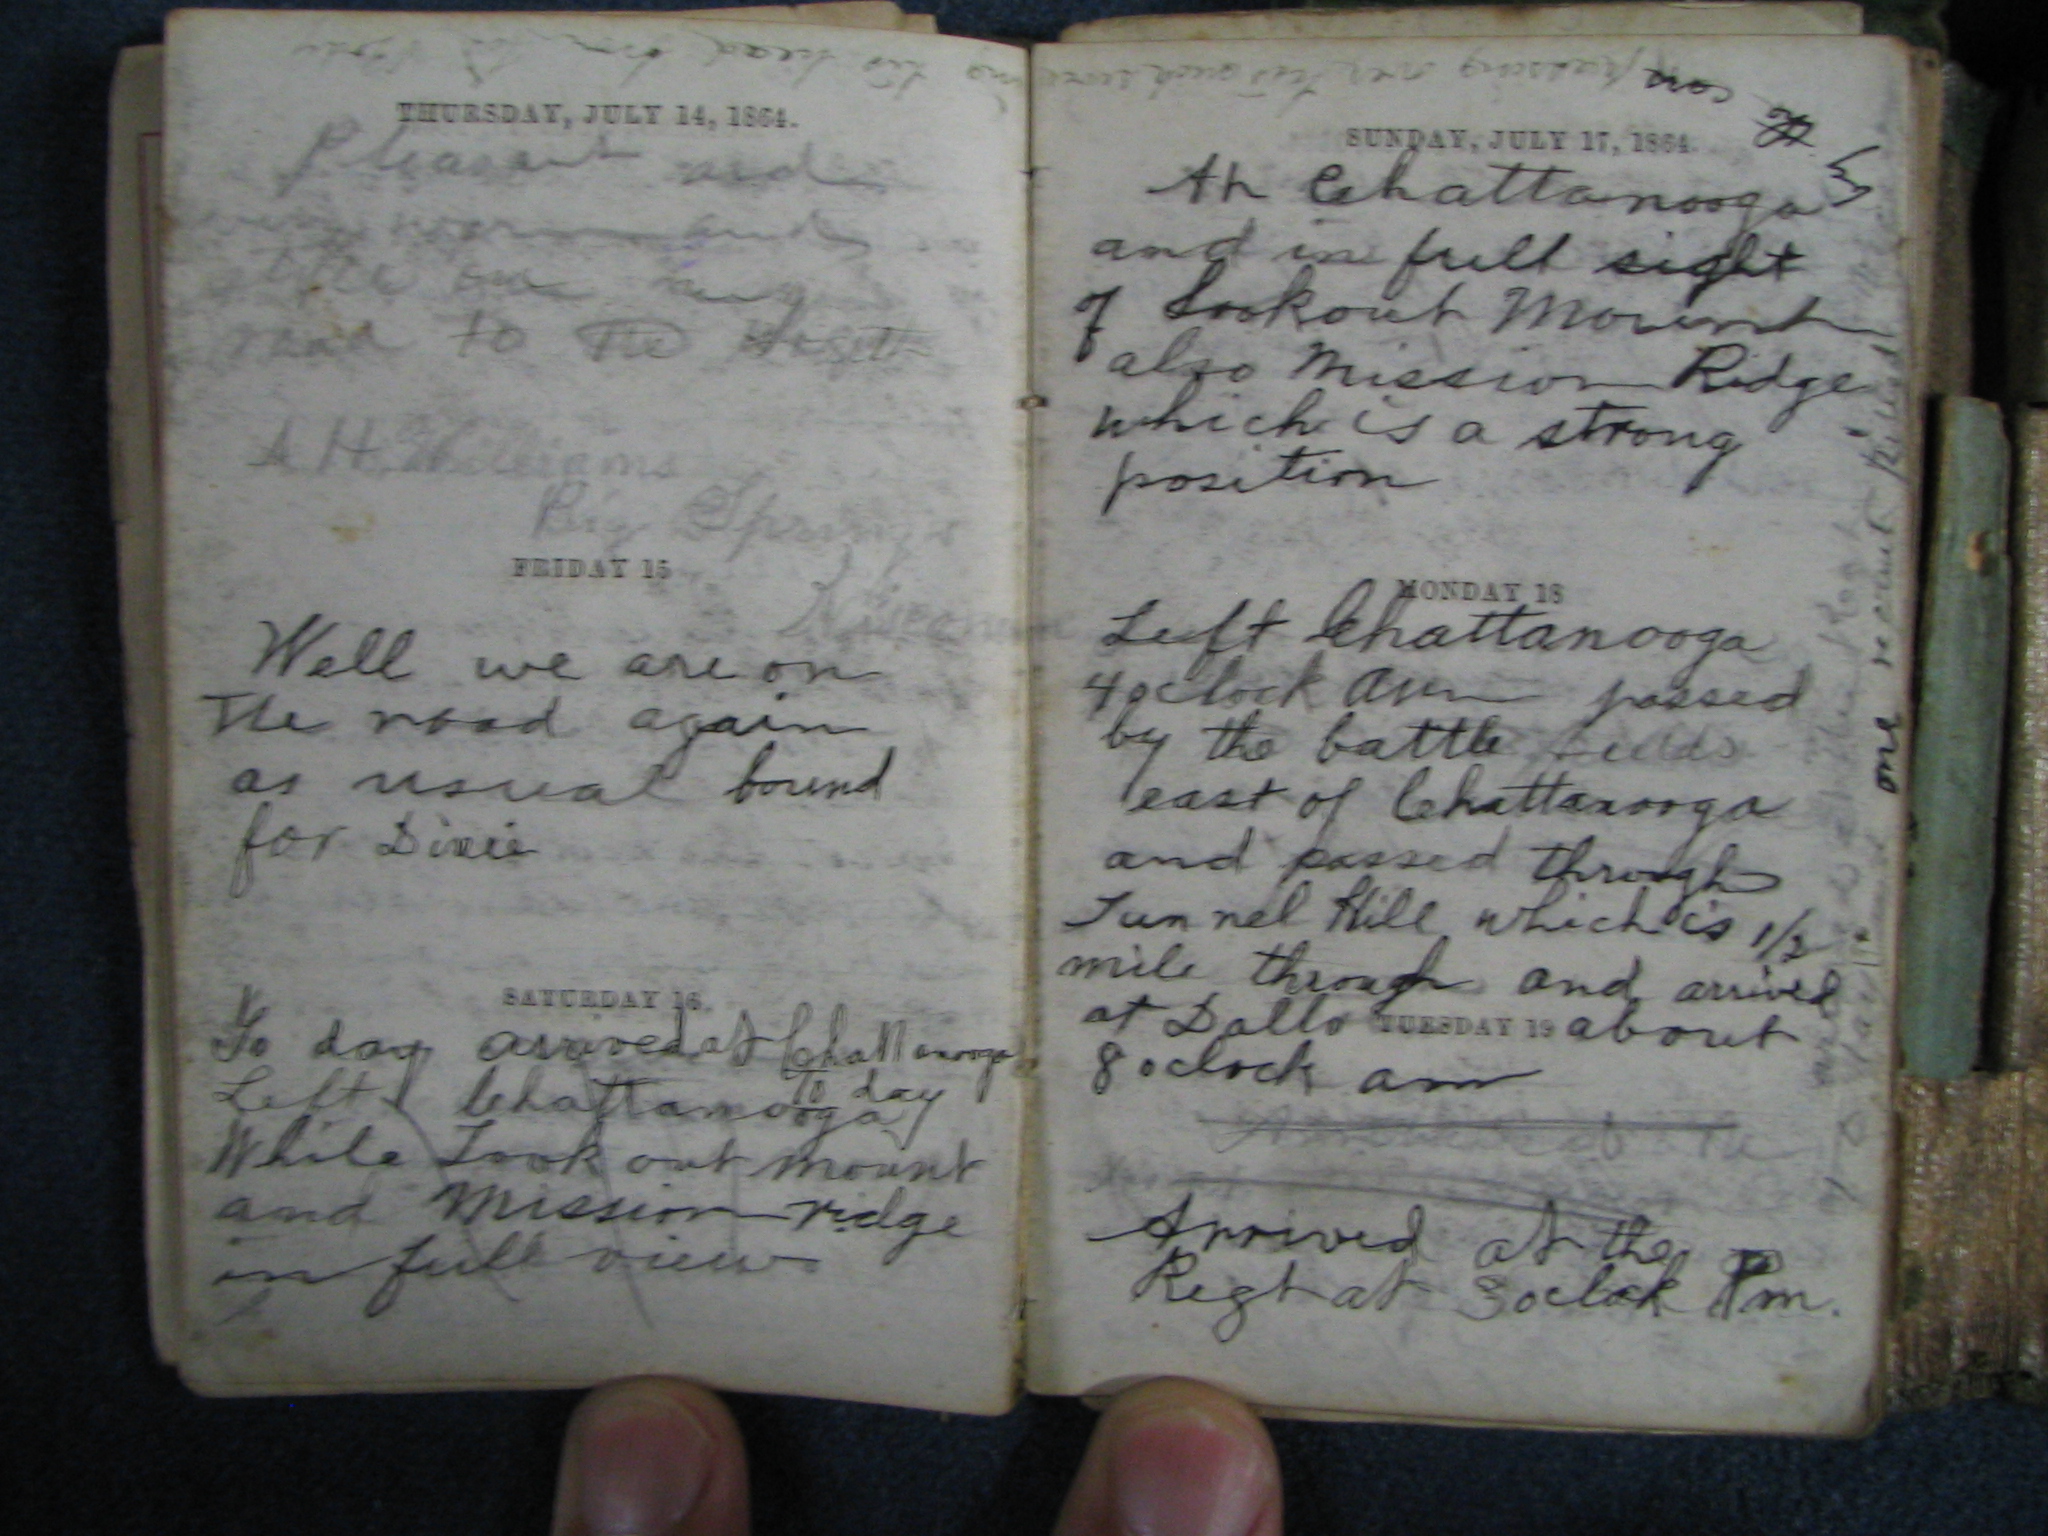 THURSDAY, JULY 14, 1864.
Pleasant and
very warm and
still on my
road to the
A H Williams
Big Springs
FRIDAY 15
Well we are on
the road again
as usual bound
for Dixie
SATURDAY 16.
To day arrived at Chattanooga
to day
Left Chattanooga
While Look out mount
and Mission ridge
in full view
SUNDAY, JULY 17, 1864.
At Chattanooga
and in full sight
of Lookout Mount
also Mission Ridge
which is a strong
position
MONDAY 18
Left Chattanooga
4 oclock am passed
by the battle fields
east of Chattanooga
and passed through
Tunnel Hill which is 1/2
mile through and arrived
at Dallo TUESDAY 19 about
8 oclock am
Arrived at the
Regt at 3 oclock Pm.
one recruit killed